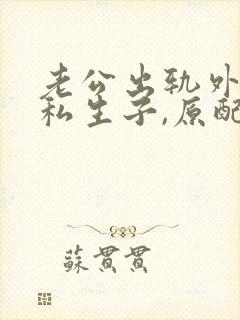 老公出轨外
私生子,原配
蘇貫貫